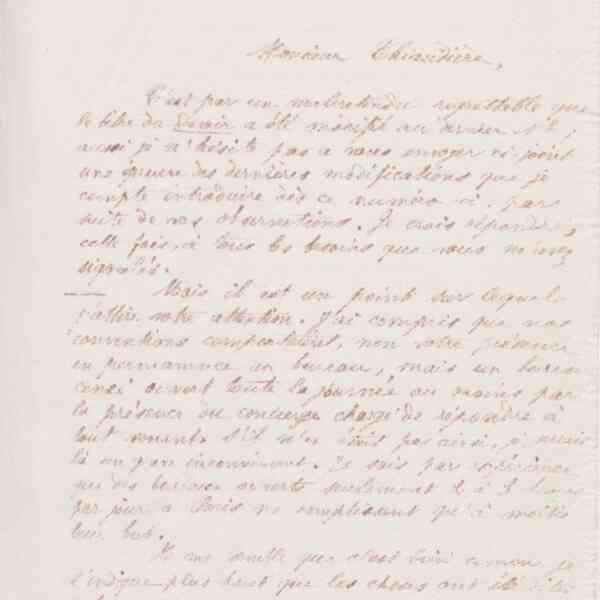 Monsieur Thiaudière,
C'est par un malentendu regrettable que
le titre du Devoir a été modifié au dernier N°;
aussi je n'hésite pas à vous envoyer ci-joint
une épreuve des dernières modifications que je
compte introduire dès ce numéro-ci par
suite de vos observations. Je crois répondre,
cette fois, à tous les besoins que vous m'avez
signalés.
Mais il est un point sur lequel
j'attire votre attention. J'ai compris que nos
conventions comportaient, non votre présence
en permanence au bureau, mais un bureau
censé ouvert toute la journée au moins par
la présence du concierge chargé de répondre à
tout venant. S'il n'en était pas ainsi, il y aurait
là un grave inconvénient. Je sais par expérience
que des bureaux ouverts seulement 2 à 3 heures
par jour à Paris ne remplissent qu'à moitié
leur but.
Il me semble que c'est bien comme je
l'indique plus haut que les choses ont été dites